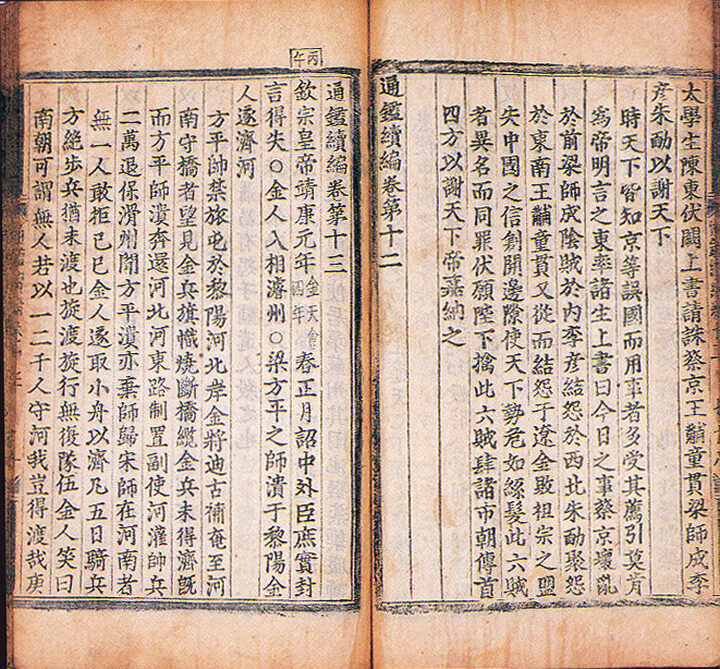 太學生陳東伏闕上書請誅蔡京王黼童貫梁師成李
彥朱勔以謝天下
時天下皆知京等誤國而用事者多受其薦引莫肯
爲帝明言之東率諸生上書曰今日之事蔡京壞亂
於前梁師成陰賊於内李彥結怨於西北朱勔聚怨
於東南王黼童貫又從而結怨于遼金敗祖宗之盟
失中國之信創開邊隙使天下勢危如絲髮此六賊
者異名而同罪伏願陛下擒此六賊肆諸市朝傳首
四方以謝天下帝嘉納之
通鑑續編卷第十二
丙午
通鑑續編卷第十三
欽宗皇帝靖康元年金天會四年春正月詔中外臣庶實封
言得失○金人入相濬州○梁方平之師潰于黎陽金
人遂濟河
方平帥禁旅屯於黎陽河北岸金將迪古補奄至河
南守橋者望見金兵旗幟燒斷橋纜金兵未得濟旣
而方平師潰奔還河北河東路制置副使河灌帥兵
二萬退保滑州聞方平潰亦棄師歸宋師在河南者
無一人敢拒已巳金人遂取小舟以濟凡五日騎兵
方絶步兵猶未渡也旋渡旋行無復隊伍金人笑曰
南朝可謂無人若以一二千人守河我豈得渡哉庚